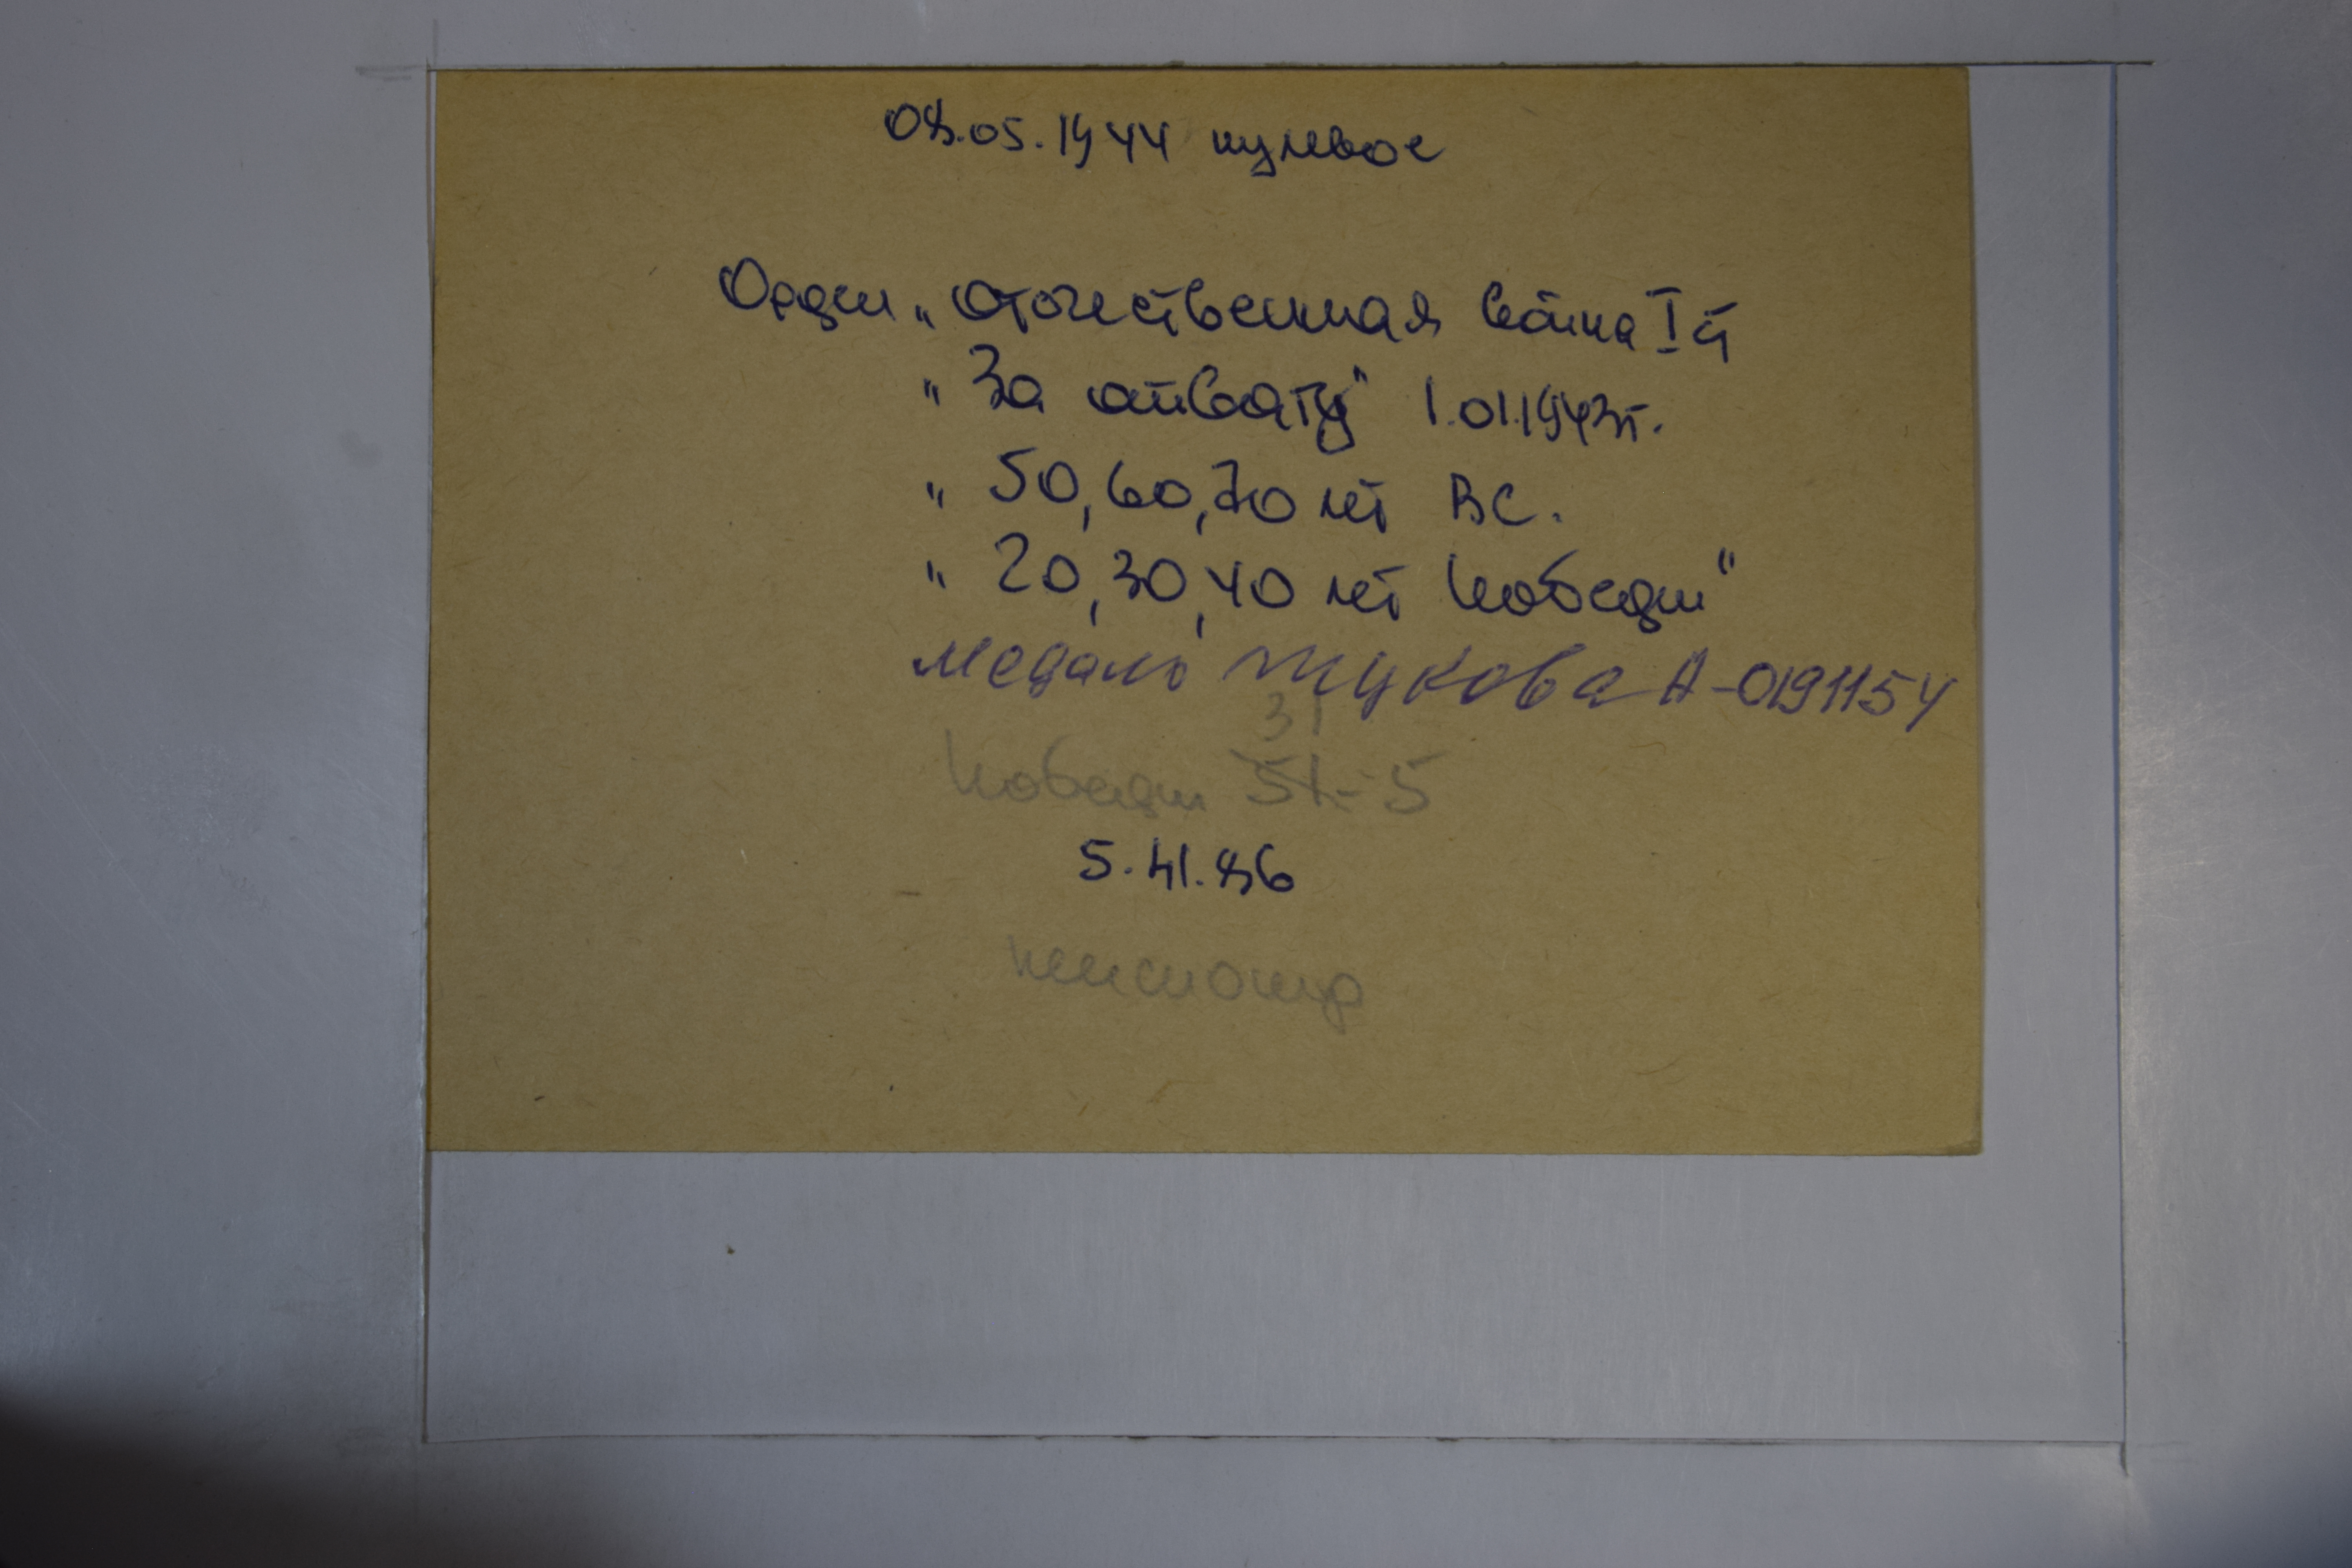 08.05.1944 пулевое
Орден „Отечественная война I й
„За отвагу" 1.01.1943г.
„ 50, 60, 70 лет ВС.
„ 20, 30, 40 лет Победы"
Медаль Жукова А-0191154
31
Победы 51-5
5.41.86
пенсионер